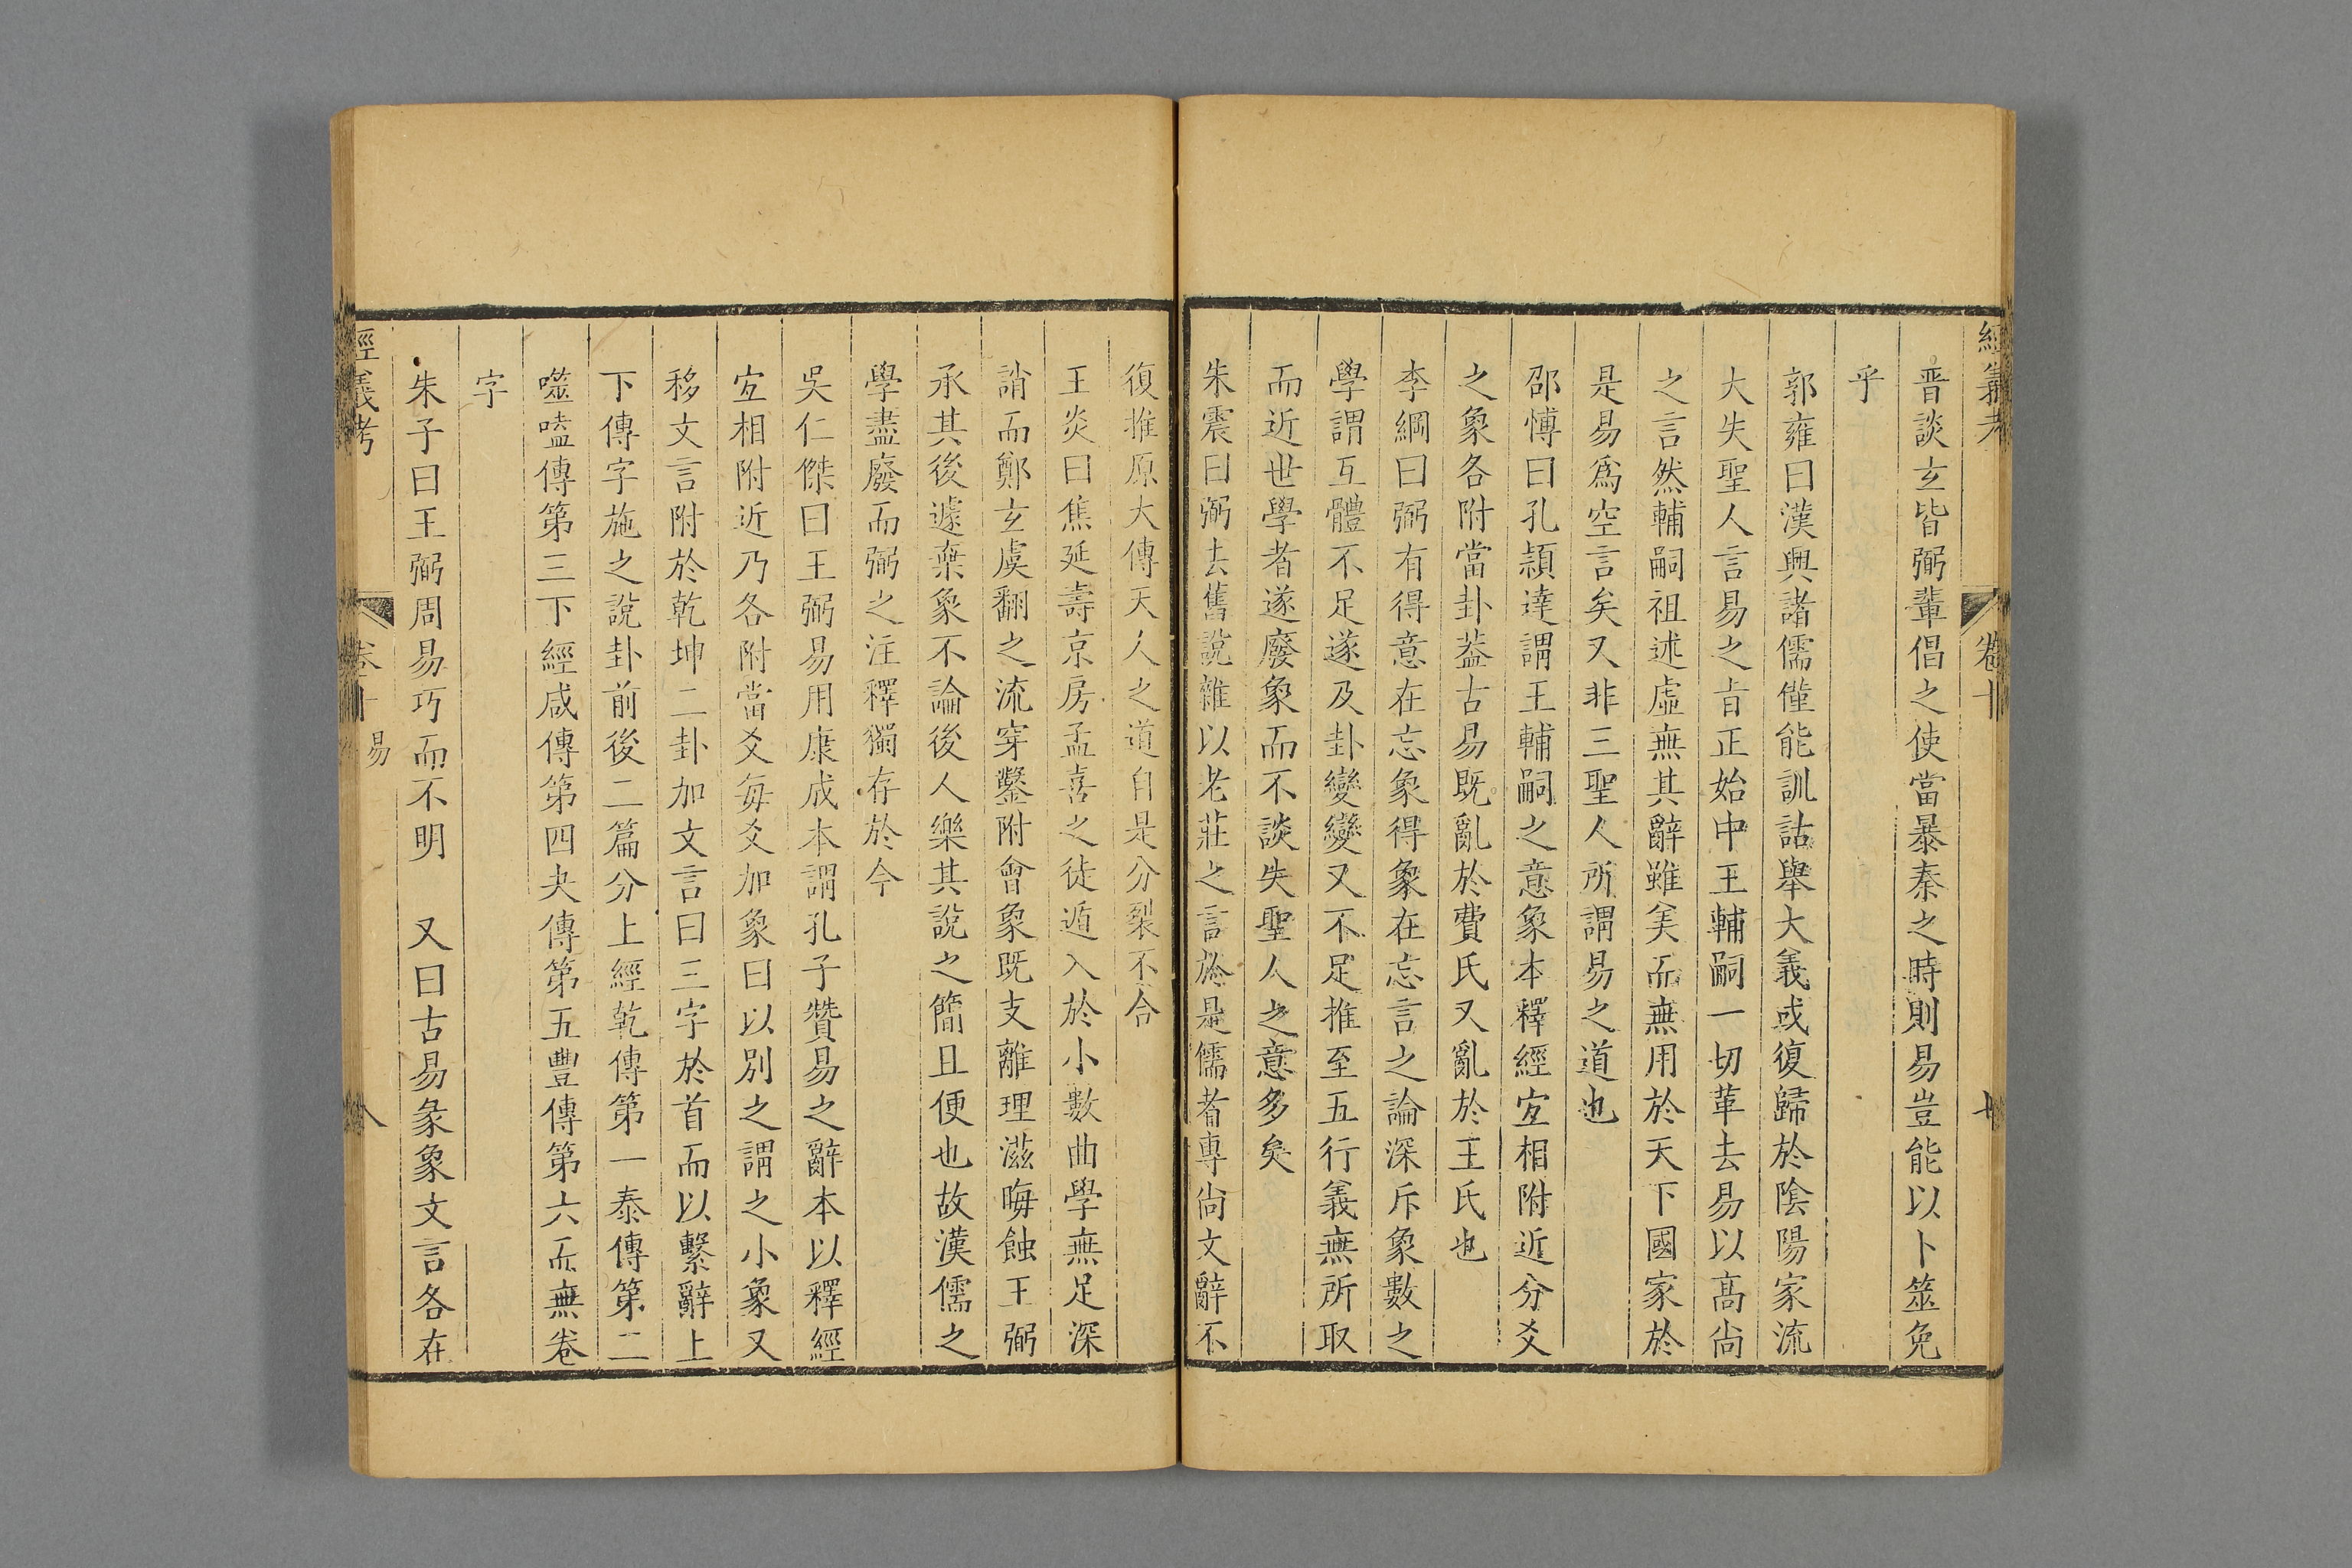 經義考
卷十
晋談玄皆弼輩倡之使當暴秦之時則易豈能以卜筮免
乎
郭雍曰漢興諸儒僅能訓詁舉大義或復歸於陰陽家流
大失聖人言易之旨正始中王輔嗣一切革去易以高尚
之言然輔嗣祖述虛無其辭雖美而無用於天下國家於
是易爲空言矣又非三聖人所謂易之道也
邵愽曰孔頴達謂王輔嗣之意象本釋經宜相附近分爻
之象各附當卦葢古易既亂於費氏又亂於王氏也
李綱曰弼有得意在忘象得象在忘言之論深斥象數之
學謂互體不足遂及卦變變又不足推至五行義無所取
而近世學者遂廢象而不談失聖人之意多矣
朱震曰弼去舊說雜以老莊之言於是儒者專尚文辭不
復推原大傳天人之道自是分裂不合
王炎曰焦延壽京房孟喜之徒遁入於小數曲學無足深
誚而鄭玄虞翻之流穿鑿附會象既支離理滋晦蝕王弼
承其後遽棄象不論後人樂其說之簡且便也故漢儒之
學盡廢而弼之注釋獨存於今
吳仁傑曰王弼易用康成本謂孔子贊易之辭本以釋經
宜相附近乃各附當爻每爻加象曰以別之謂之小象又
移文言附於乾坤二卦加文言曰三字於首而以繫辭上
下傳字施之說卦前後二篇分上經乾傳第一泰傳第二
噬嗑傳第三下經咸傳第四夬傳第五豐傳第六而無卷
字
朱子曰王弼周易巧而不明　又曰古易彖象文言各在
經義考
卷十
易
八